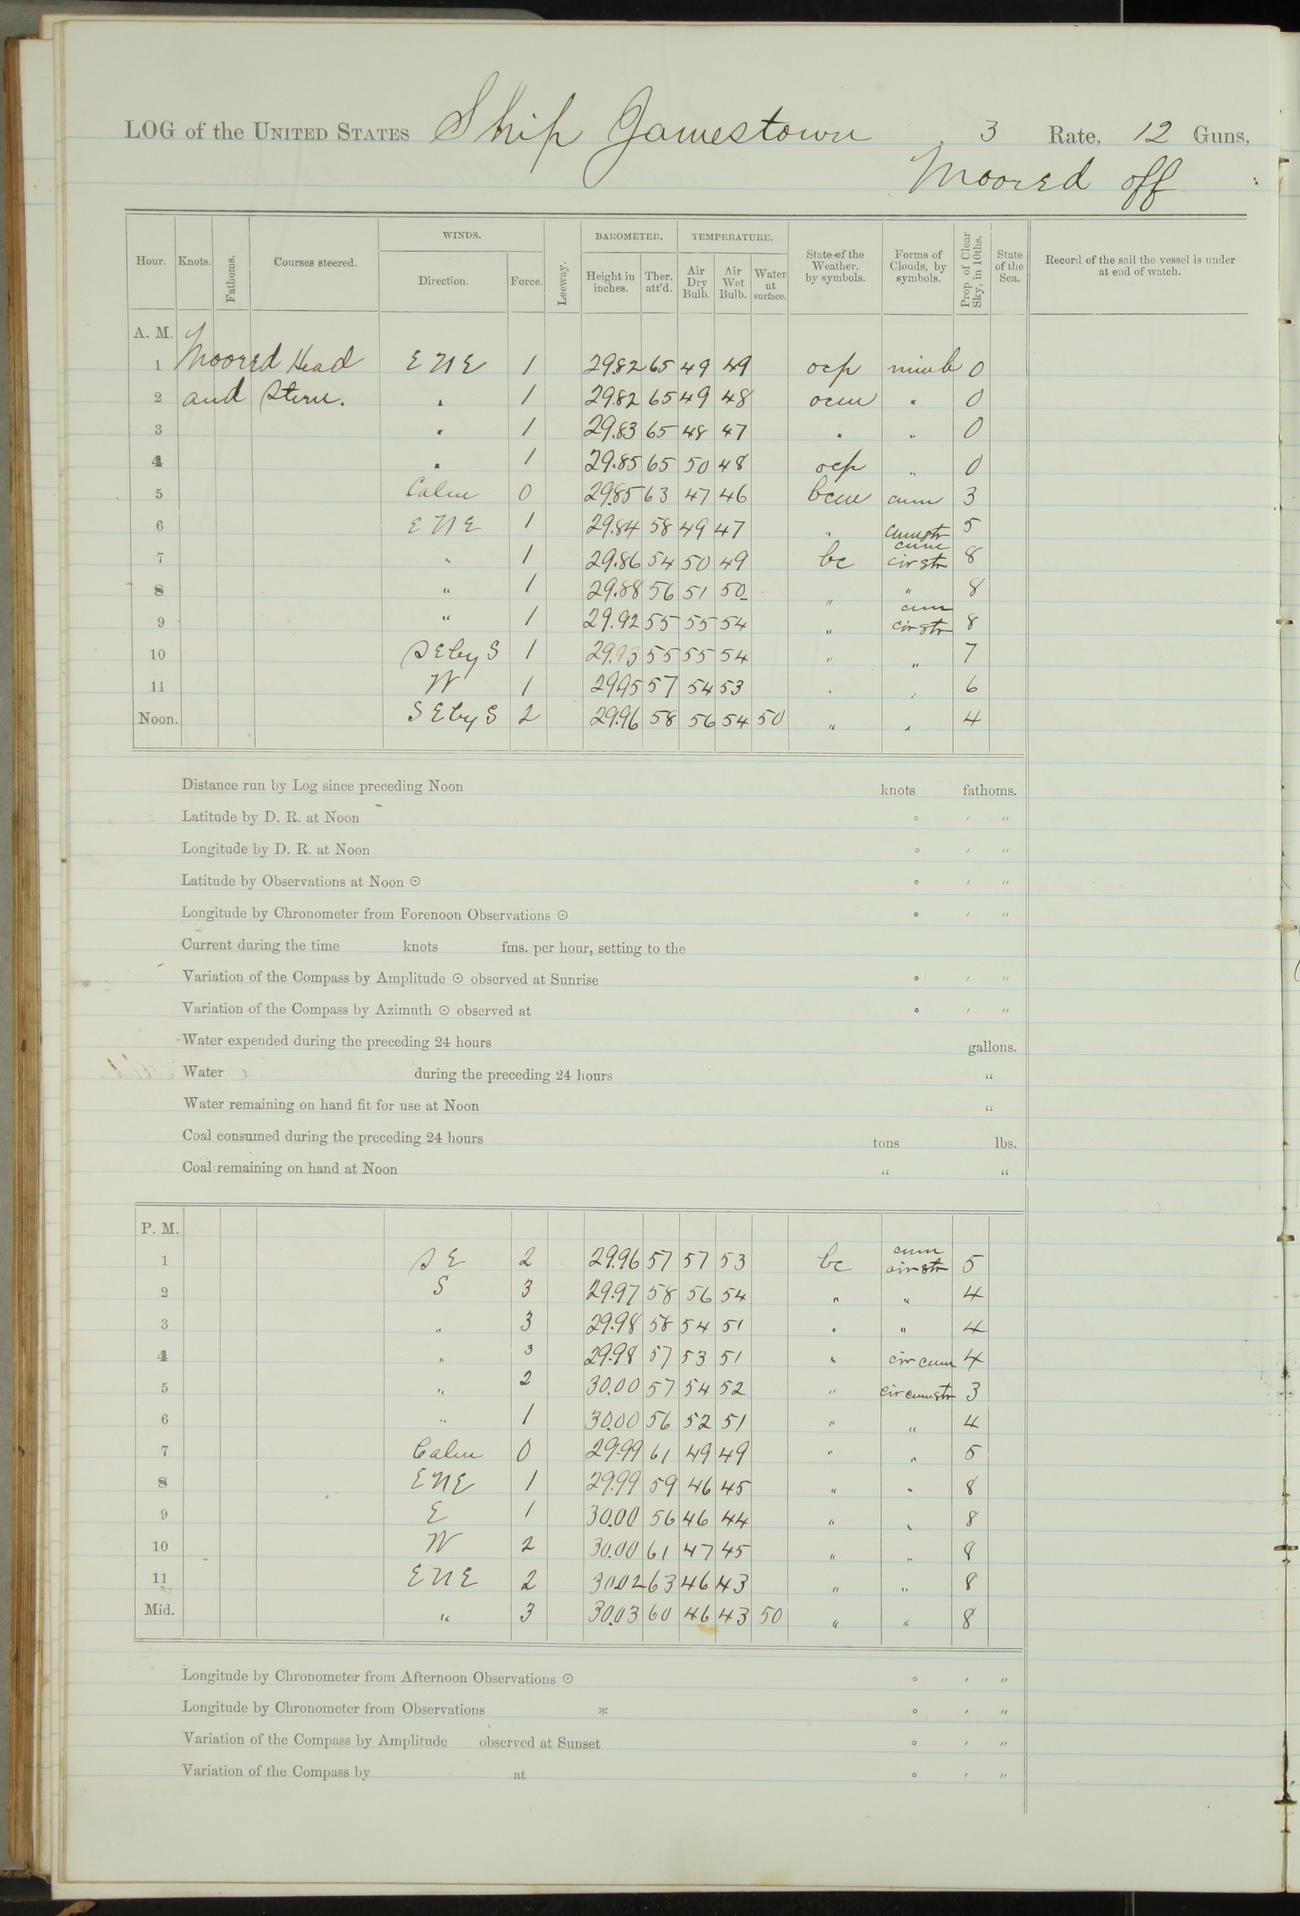 LOG of the UNITED STATES Ship Jamestown, 3 Rate, 12 Guns,
Moored off
Hour. Knots. Fathoms. Courses steered. WINDS. Direction. Force. Leeway. BAROMETER. Height in inches. Ther. att'd. TEMPERATURE. Air Dry Bulb. Air Wet Bulb. Water at surface. State of the Weather, by symbols. Forms of Clouds, by symbols. Prop. of Clear Sky, in 10ths. State of the Sea. Record of the sail the vessel is under at end of watch.
A. M.
1 Moored Head ENE 1 29.82 65 49 49 ocp nimb 0
2 and Stern. " 1 29.82 65 49 48 ocm " 0
3 " 1 29.83 65 48 47 " " 0
4 " 1 29.85 65 50 48 ocp " 0
5 Calm 0 29.85 63 47 46 bcm cum 3
6 ENE 1 29.84 58 49 47 " cumstr 5
7 " 1 29.86 54 50 49 bc cum cirstr 8
8 " 1 29.88 56 51 50 " " 8
9 " 1 29.92 55 55 54 " cum cirstr 8
10 SEbyS 1 29.93 55 55 54 " " 7
11 W 1 29.95 57 54 53 " " 6
Noon. SEbyS 2 29.96 58 56 54 50 " " 4
Distance run by Log since preceding Noon knots fathoms.
Latitude by D. R. at Noon ° ' "
Longitude by D. R. at Noon ° ' "
Latitude by Observations at Noon ☉ ° ' "
Longitude by Chronometer from Forenoon Observations ☉ ° ' "
Current during the time knots fms. per hour, setting to the
Variation of the Compass by Amplitude ☉ observed at Sunrise ° ' "
Variation of the Compass by Azimuth ☉ observed at ° ' "
Water expended during the preceding 24 hours gallons.
Water during the preceding 24 hours "
Water remaining on hand fit for use at Noon "
Coal consumed during the preceding 24 hours tons lbs.
Coal remaining on hand at Noon " "
P. M.
1 SE 2 29.96 57 57 53 bc cum cirstr 5
2 S 3 29.97 58 56 54 " " 4
3 " 3 29.98 58 54 51 " " 4
4 " 3 29.98 57 53 51 " cir cum 4
5 " 2 30.00 57 54 52 " cir cumstr 3
6 " 1 30.00 56 52 51 " " 4
7 Calm 0 29.99 61 49 49 " " 5
8 ENE 1 29.99 59 46 45 " " 8
9 E 1 30.00 56 46 44 " " 8
10 W 2 30.00 61 47 45 " " 8
11 ENE 2 30.02 63 46 43 " " 8
Mid. " 3 30.03 60 46 43 50 " " 8
Longitude by Chronometer from Afternoon Observations ☉ ° ' "
Longitude by Chronometer from Observations * ° ' "
Variation of the Compass by Amplitude observed at Sunset ° ' "
Variation of the Compass by at ° ' "